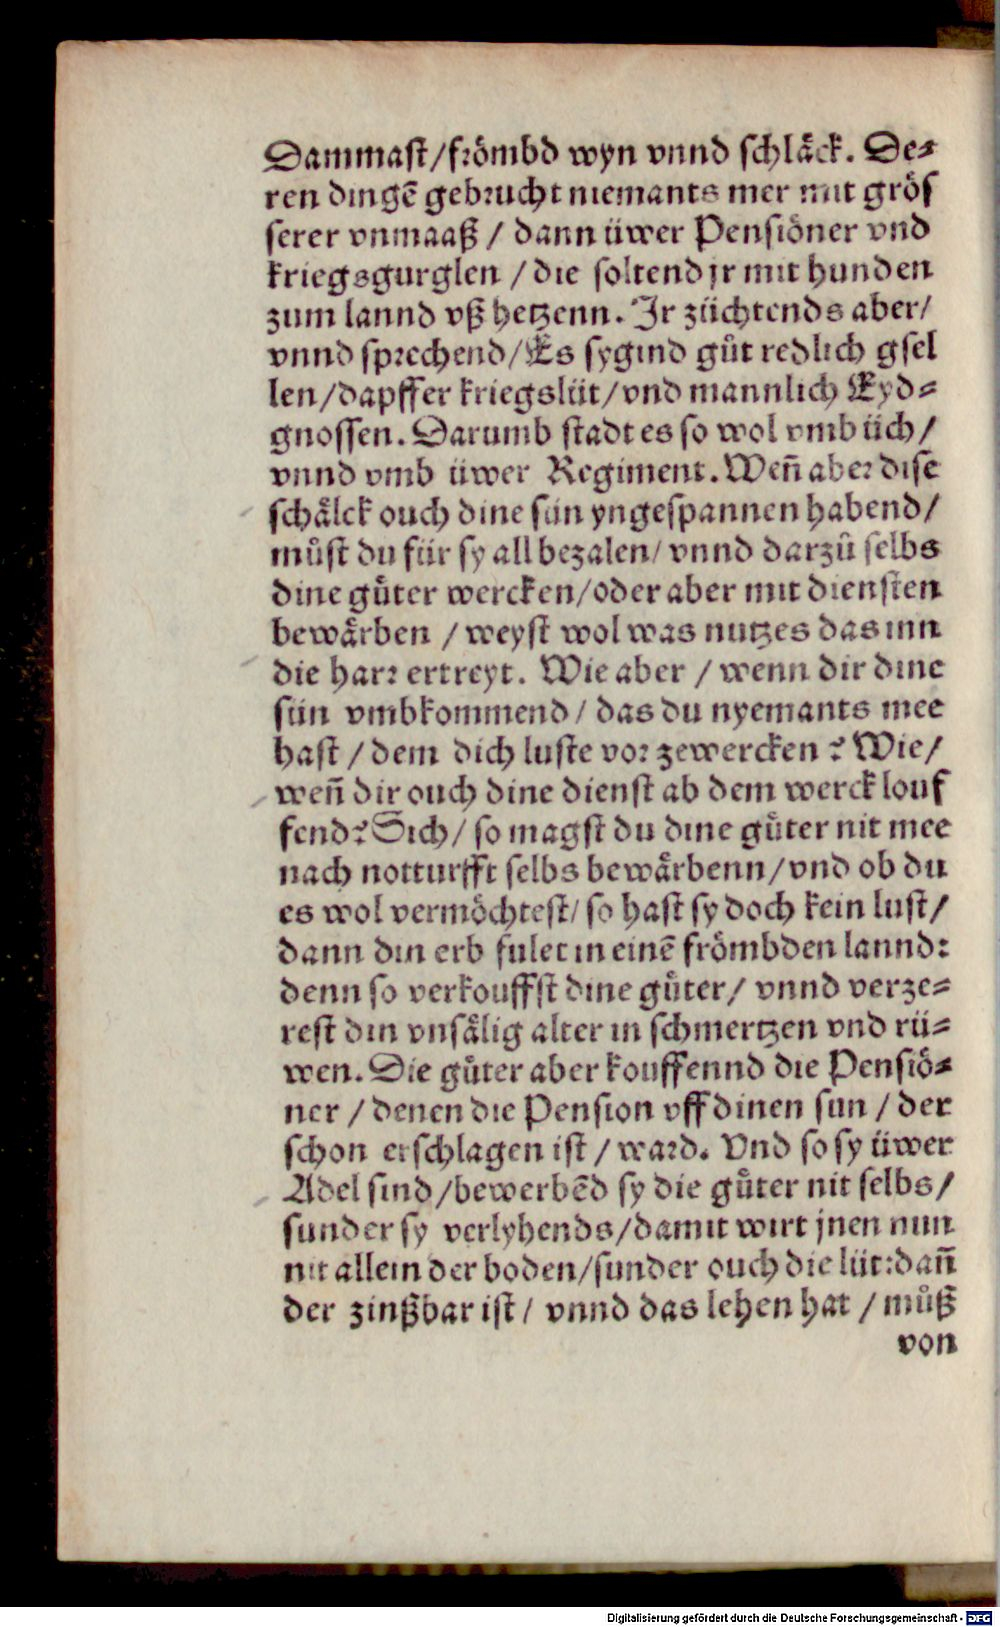 Dammast/frömbd wyn vnnd schlaͤck. De⸗
ren dingē gebrucht niemants mer mit grös
serer vnmaaß / dann üwer Pensiöner vnd
kriegsgurglen / die soltend jr mit hunden
zum lannd vß hetzenn. Ir züchtends aber/
vnnd sprechend/Es sygind guͦt redlich gsel
len/dapffer kriegslüt/vnd mannlich Eyd⸗
gnossen. Darumb stadt es so wol vmb üch/
vnnd vmb üwer Regiment. Weñ aber dise
schaͤlck ouch dine sün yngespannen habend/
muͦst du für sy all bezalen/ vnnd darzuͦ selbs
dine guͤter wercken/oder aber mit diensten
bewaͤrben / weyst wol was nutzes das inn
die harr ertreyt. Wie aber / wenn dir dine
sün vmbkommend / das du nyemants mee
hast / dem dich luste vor zewercken ? Wie/
weñ dir ouch dine dienst ab dem werck louf
fend? Sich/ so magst du dine guͤter nit mee
nach notturfft selbs bewaͤrbenn/vnd ob du
es wol vermöchtest/ so hast sy doch kein lust/
dann din erb fulet in einē frömbden lannd:
denn so verkouffst dine guͤter/ vnnd verze⸗
rest din vnsaͤlig alter in schmertzen vnd rü⸗
wen. Die guͤter aber kouffennd die Pensiö⸗
ner / denen die Pension vff dinen sun / der
schon erschlagen ist / ward. Vnd so sy üwer
Adel sind/bewerbēd sy die guͤter nit selbs/
sunder sy verlyhends/damit wirt jnen nun
nit allein der boden/sunder ouch die lüt:dañ
der zinßbar ist / vnnd das lehen hat / muͦß
von
Digitalisierung gefördert durch die Deutsche Forschungsgemeinschaft - DFG